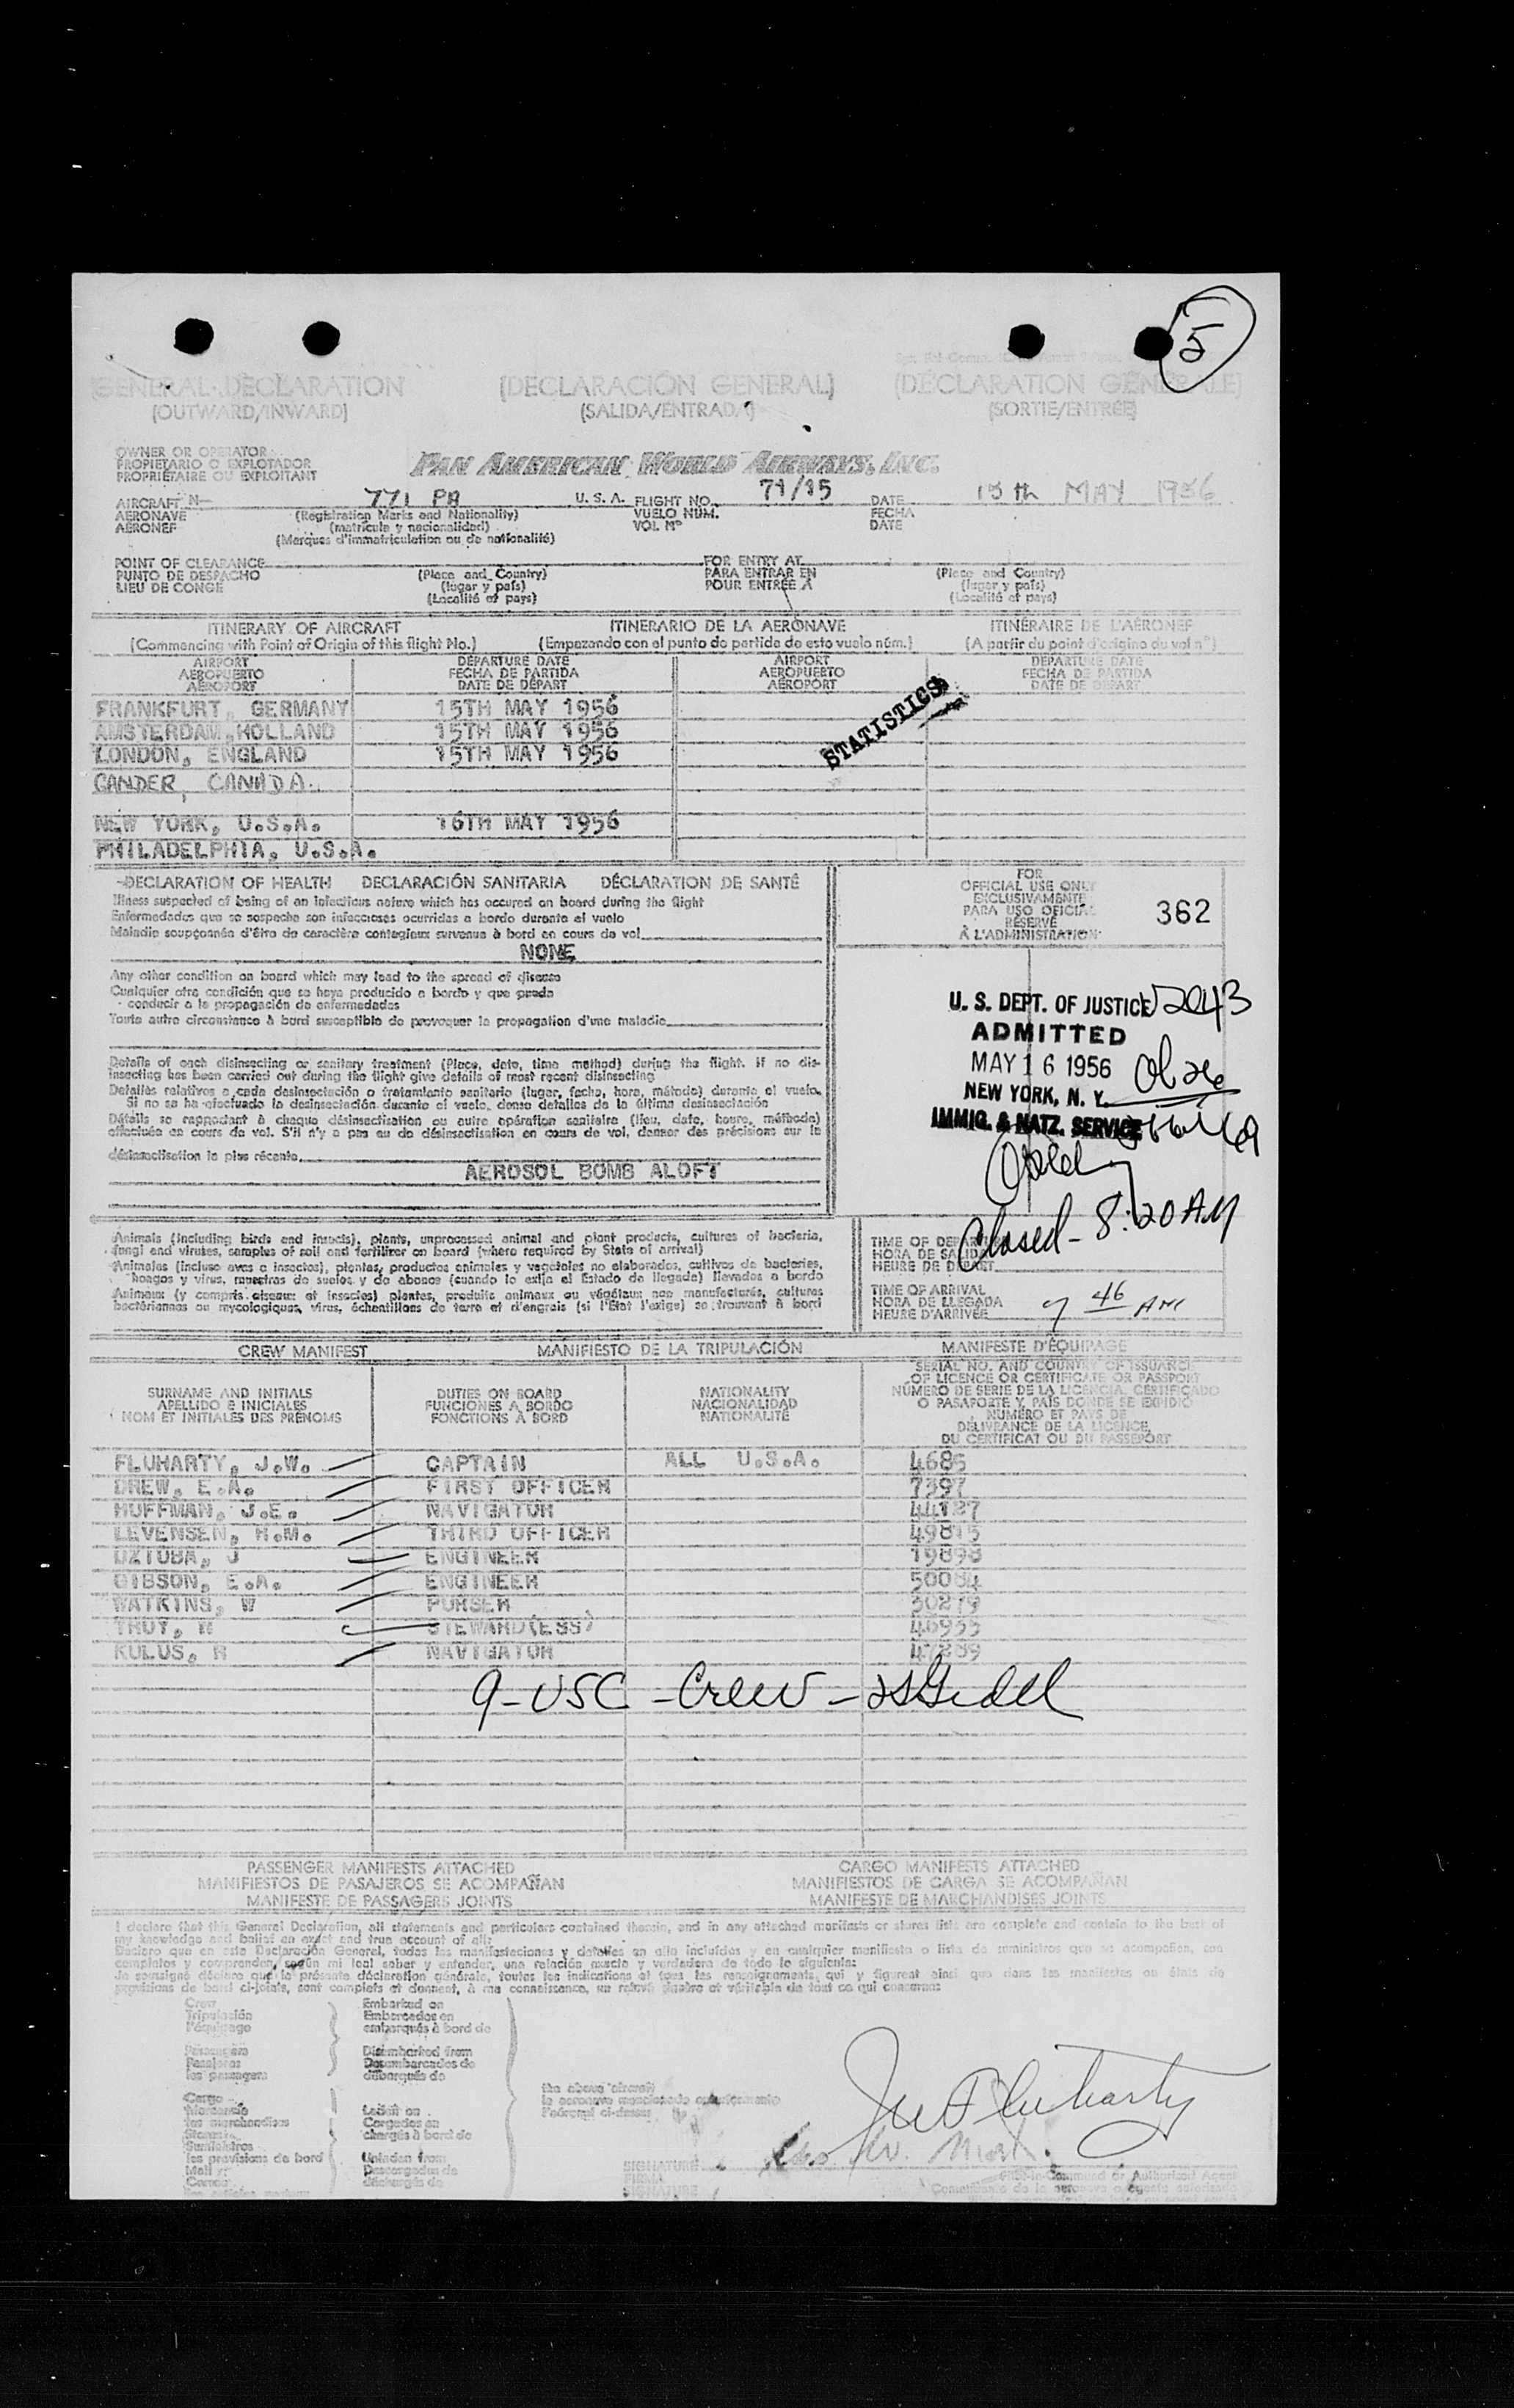 5
(GENERAL DECLARATION (DECLARACIÓN GENERAL) (DÉCLARATION GÉNÉRALE)
(OUTWARD/INWARD) (SALIDA/ENTRADA) (SORTIE/ENTRÉE)
OWNER OR OPERATOR
PROPIETARIO O EXPLOTADOR
PROPRIÉTAIRE OU EXPLOITANT
PAN AMERICAN WORLD AIRWAYS, INC.
AIRCRAFT N— 771 PA U. S. A. FLIGHT NO. 71/15 DATE 15th MAY 1956
AERONAVE (Registration Marks and Nationality) VUELO NÚM. FECHA
AÉRONEF (matrícula y nacionalidad) VOL Nº DATE
(Marques d'immatriculation ou de nationalité)
POINT OF CLEARANCE FOR ENTRY AT
PUNTO DE DESPACHO (Place and Country) PARA ENTRAR EN (Place and Country)
LIEU DE CONGE (lugar y país) POUR ENTRÉE À (lugar y país)
(Localité et pays) (Localité et pays)
ITINERARY OF AIRCRAFT ITINERARIO DE LA AERONAVE ITINÉRAIRE DE L'AÉRONEF
(Commencing with Point of Origin of this flight No.) (Empezando con el punto de partida de esto vuelo núm.) (A partir du point d'origine du vol nº)
AIRPORT DEPARTURE DATE AIRPORT DEPARTURE DATE
AEROPUERTO FECHA DE PARTIDA AEROPUERTO FECHA DE PARTIDA
AÉROPORT DATE DE DÉPART AÉROPORT DATE DE DÉPART
FRANKFURT, GERMANY 15TH MAY 1956
AMSTERDAM, HOLLAND 15TH MAY 1956
LONDON, ENGLAND 15TH MAY 1956
STATISTICS
GANDER, CANADA.
NEW YORK, U.S.A. 16TH MAY 1956
PHILADELPHIA, U.S.A.
DECLARATION OF HEALTH DECLARACIÓN SANITARIA DÉCLARATION DE SANTÉ
Illness suspected of being of an infectious nature which has occured on board during the flight
Enfermedades que se sospecha son infecciosas ocurridas a bordo durante el vuelo
Maladie soupçonnée d'être de caractère contagieux survenue à bord en cours de vol
NONE
Any other condition on board which may lead to the spread of disease
Cualquier otra condición que se haya producido a bordo y que pueda
conducir a la propagación de enfermedades
Toute autre circonstance à bord susceptible de provoquer la propagation d'une maladie
Details of each disinsecting or sanitary treatment (Place, date, time method) during the flight. If no dis-
insecting has been carried out during the flight give details of most recent disinsecting
Detalles relativos a cada desinsectación o tratamiento sanitario (lugar, fecha, hora, método) durante el vuelo.
Si no se ha efectuado la desinsectación durante el vuelo, dense detalles de la última desinsectación
Détails se rapportant à chaque désinsectisation ou autre opération sanitaire (lieu, date, heure, méthode)
effectuée en cours de vol. S'il n'y a pas eu de désinsectisation en cours de vol, donner des précisions sur la
désinsectisation la plus récente.
AEROSOL BOMB ALOFT
FOR
OFFICIAL USE ONLY
EXCLUSIVAMENTE
PARA USO OFICIAL
RÉSERVÉ
À L'ADMINISTRATION
362
U. S. DEPT. OF JUSTICE
ADMITTED
MAY 16 1956
NEW YORK, N. Y.
IMMIG. & NATZ. SERVICE
Closed - 8:20 AM
Animals (including birds and insects), plants, unprocessed animal and plant products, cultures of bacteria,
fungi and viruses, samples of soil and fertilizer on board (where required by State of arrival)
Animales (incluso aves e insectos), plantas, productos animales y vegetales no elaborados, cultivos de bacterias,
hongos y virus, muestras de suelos y de abonos (cuando lo exija el Estado de llegada) llevados a bordo
Animaux (y compris oiseaux et insectes) plantes, produits animaux ou végétaux non manufacturés, cultures
bactériennes ou mycologiques, virus, échantillons de terre et d'engrais (si l'État l'exige) se trouvant à bord
TIME OF DEPARTURE
HORA DE SALIDA
HEURE DE DÉPART
TIME OF ARRIVAL
HORA DE LLEGADA
HEURE D'ARRIVÉE 7 46 AM
CREW MANIFEST MANIFIESTO DE LA TRIPULACIÓN MANIFESTE D'ÉQUIPAGE
SURNAME AND INITIALS
APELLIDO E INICIALES
NOM ET INITIALES DES PRÉNOMS
DUTIES ON BOARD
FUNCIONES A BORDO
FONCTIONS À BORD
NATIONALITY
NACIONALIDAD
NATIONALITÉ
SERIAL NO. AND COUNTRY OF ISSUANCE
OF LICENCE OR CERTIFICATE OR PASSPORT
NÚMERO DE SERIE DE LA LICENCIA, CERTIFICADO
O PASAPORTE Y PAÍS DONDE SE EXPIDIÓ
NUMÉRO ET PAYS DE
DÉLIVRANCE DE LA LICENCE,
DU CERTIFICAT OU DU PASSEPORT
FLUHARTY, J.W. CAPTAIN ALL U.S.A. 4685
DREW, E.A. FIRST OFFICER 7397
HUFFMAN, J.E. NAVIGATOR 44127
LEVENSEN, H.M. THIRD OFFICER 49815
DZIUBA, J ENGINEER 19898
GIBSON, E.A. ENGINEER 50084
WATKINS, W PURSER 30279
TROY, STEWARD(ESS)
KULUS, R NAVIGATOR
9-USC - Crew -
PASSENGER MANIFESTS ATTACHED CARGO MANIFESTS ATTACHED
MANIFIESTOS DE PASAJEROS SE ACOMPAÑAN MANIFIESTOS DE CARGA SE ACOMPAÑAN
MANIFESTE DE PASSAGERS JOINTS MANIFESTE DE MARCHANDISES JOINTS
I declare that this General Declaration, all statements and particulars contained therein, and in any attached manifests or stores lists are complete and contain to the best of
my knowledge and belief an exact and true account of all:
Declaro que en esta Declaración General, todas las manifestaciones y detalles en ella incluídos y en cualquier manifiesto o lista de suministros que se acompañen, son
completos y comprenden, según mi leal saber y entender, una relación exacta y verdadera de todo lo siguiente:
Je soussigné déclare que la présente déclaration générale, toutes les indications et tous les renseignements, qui y figurent ainsi que dans les manifestes ou états de
provisions de bord ci-joints, sont complets et donnent, à ma connaissance, un relevé sincère et véritable de tout ce qui concerne:
Crew Embarked on
Tripulación Embarcados en
l'équipage embarqués à bord de
Passengers Disembarked from
Pasajeros Desembarcados de
les passagers débarqués de
the above aircraft
la aeronave mencionada anteriormente
l'aéronef ci-dessus
Cargo
Mercancía Laden on
les marchandises Cargados en
Stores chargés à bord de
Suministros
les provisions de bord Unladen from
Mail Descargados de
Correo déchargés de
JW Fluharty
SIGNATURE
FIRMA
SIGNATURE
Pilot-in-Command or Authorized Agent
Comandante de la aeronave o agente autorizado